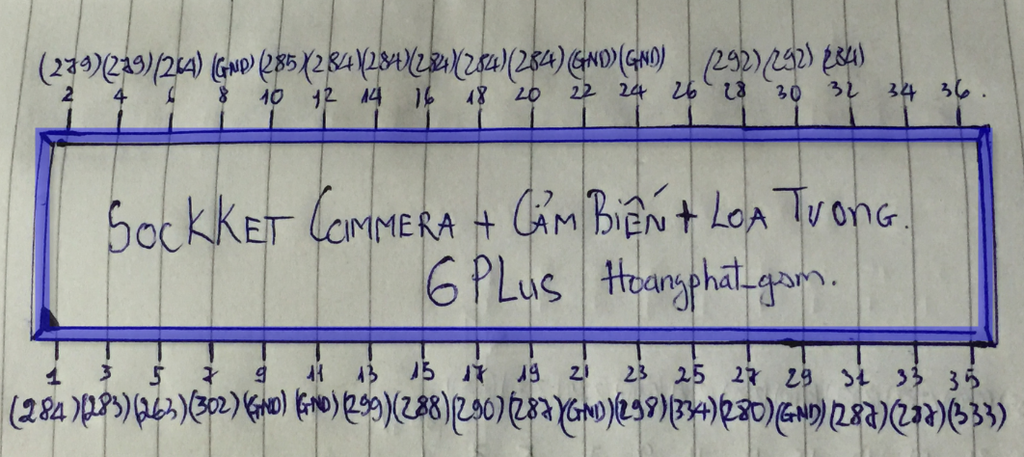 (279)(279)(264) (GND)(285)(284)(284)(284)(284)(284)(GND)(GND) (292)(292)(284)
2 4 6 8 10 12 14 16 18 20 22 24 26 28 30 32 34 36.
SOCKKET CAMMERA + CẢM BIẾN + LOA TVONG.
6 PLUS Hoangphat_gsm.
1 3 5 7 9 11 13 15 17 19 21 23 25 27 29 31 33 35
(284)(283)(263)(302)(GND)(GND)(299)(288)(290)(287)(GND)(298)(334)(280)(GND)(287)(287)(333)